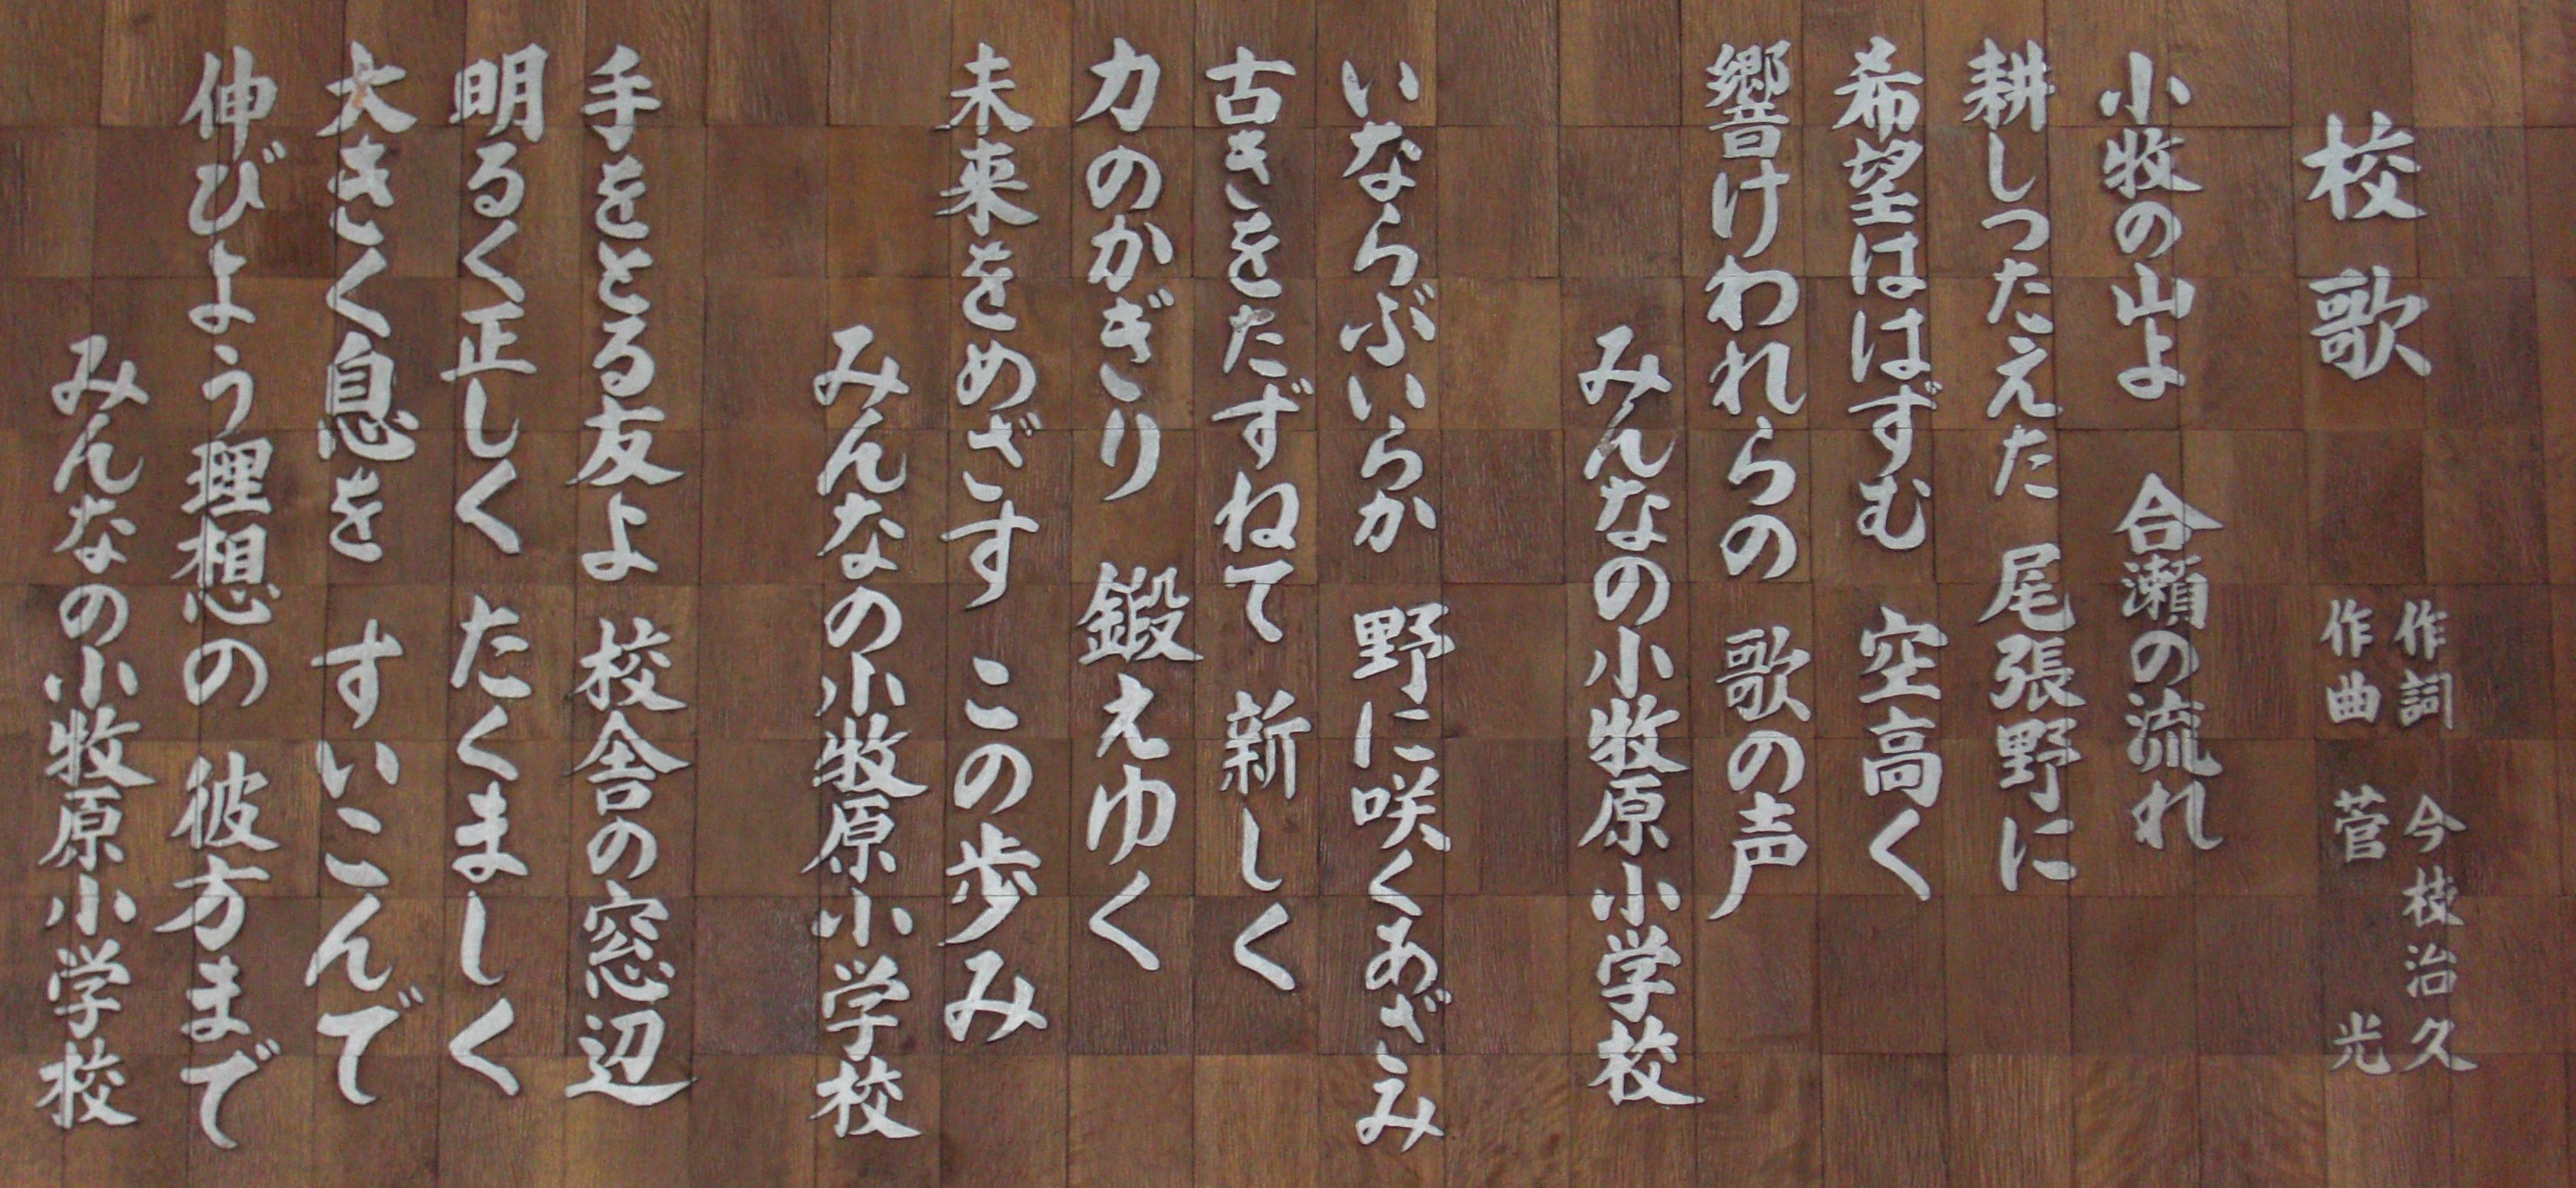 校歌
作詞 今枝治久
作曲 菅 光
小牧の山よ 合瀬の流れ
耕しつたえた 尾張野に
希望ははずむ 空高く
響けわれらの 歌の声
みんなの小牧原小学校
いならぶいらか 野に咲くあざみ
古きをたずねて 新しく
力のかぎり 鍛えゆく
未来をめざす この歩み
みんなの小牧原小学校
手をとる友よ 校舎の窓辺
明るく正しく たくましく
大きく息を すいこんで
伸びよう理想の 彼方まで
みんなの小牧原小学校